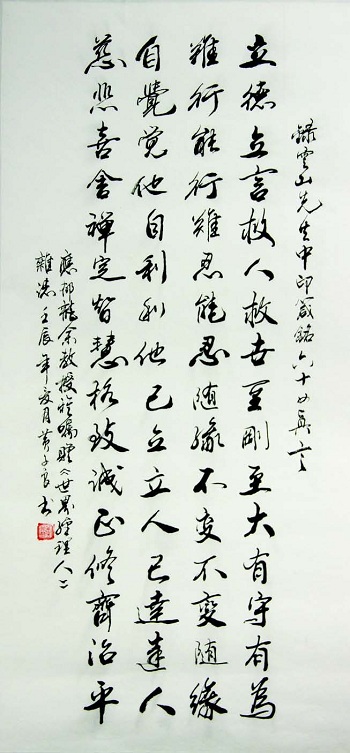 錄雲山先生中印箴銘六十四真言
立德立言救人救世至剛至大有守有為
難行能行難忍能忍随緣不变不變随緣
自覺觉他自利利他己立立人己達達人
慈悲喜舍禪定智慧格致誠正修齊治平
應郁龍余教授囑《世界經理人》
雜志壬辰年月黄子良书